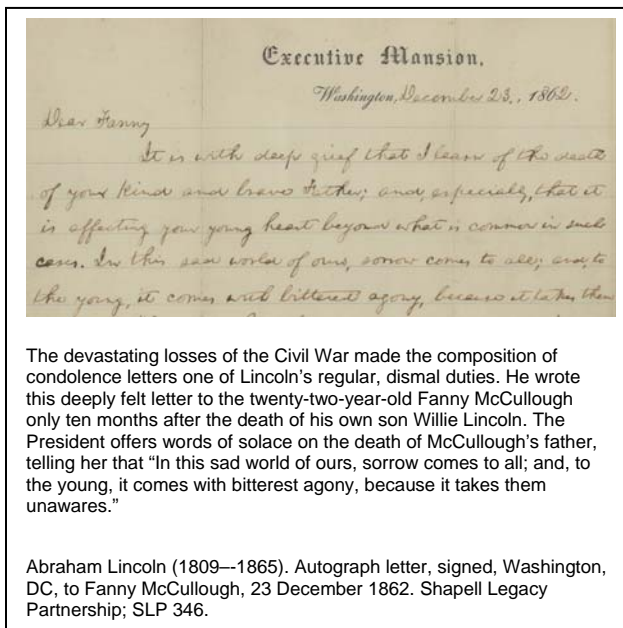 Executive Mansion,
Washington, December 23, 1862.
Dear Fanny
It is with deep grief that I learn of the death
of your kind and brave Father; and, especially, that it
is affecting your young heart beyond what is common in such
cases. In this sad world of ours, sorrow comes to all; and, to
the young, it comes with bitterest agony, because it takes them
The devastating losses of the Civil War made the composition of
condolence letters one of Lincoln’s regular, dismal duties. He wrote
this deeply felt letter to the twenty-two-year-old Fanny McCullough
only ten months after the death of his own son Willie Lincoln. The
President offers words of solace on the death of McCullough’s father,
telling her that “In this sad world of ours, sorrow comes to all; and, to
the young, it comes with bitterest agony, because it takes them
unawares.”
Abraham Lincoln (1809–-1865). Autograph letter, signed, Washington,
DC, to Fanny McCullough, 23 December 1862. Shapell Legacy
Partnership; SLP 346.